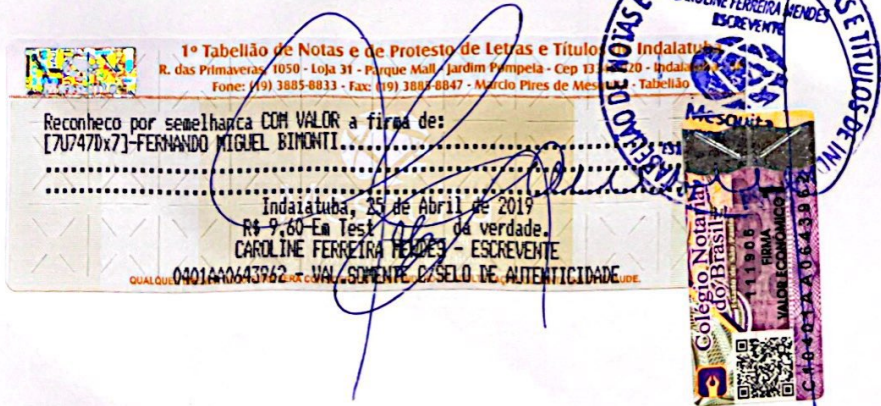 1º Tabelião de Notas e de Protesto de Letras e Títulos de Indaiatuba
R. das Primaveras, 1050 - Loja 31 - Parque Mall - Jardim Pompéia - Cep
Fone: (19) 3885-8833 - Fax: (19) 3885-8847 - Marcio Pires de - Tabelião
Reconheco por semelhança COM VALOR a firma de:
[7U747Dx7]-FERNANDO MIGUEL BIMONTI
Indaiatuba, 25 de Abril de 2019
R$ 9,60-Em Test da verdade.
CAROLINE FERREIRA MENDES - ESCREVENTE
0401AA0643962 - VAL.SOMENTE C/SELO DE AUTENTICIDADE
FERREIRA MENDES
ESCREVENTE
Mesquita
Colégio Notarial
do Brasil
111906
FIRMA
VALOR ECONÔMICO 1
C10401AA0643962